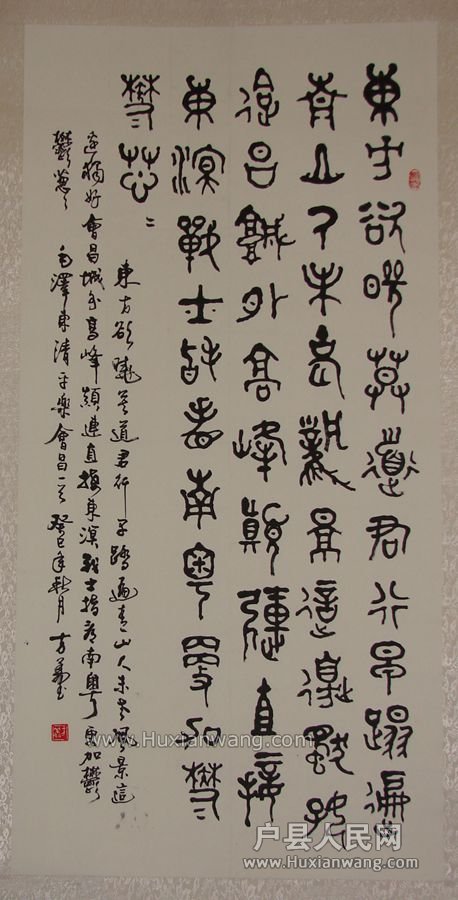 東方欲曉莫道君行早蹋遍
青山人未老風景這邊獨好
會昌城外高峰顛連直接
東溟戰士指看南粵更加鬱
鬱〻葱〻
東方欲曉莫道君行早踏遍青山人未老風景這
邊獨好會昌城外高峰顛連直接東溟戰士指看南粵更加鬱
鬱葱〻 毛澤東清平樂會昌一首 癸巳年秋月
www.Huxianwang.com
户县人民网
www.Huxianwang.com